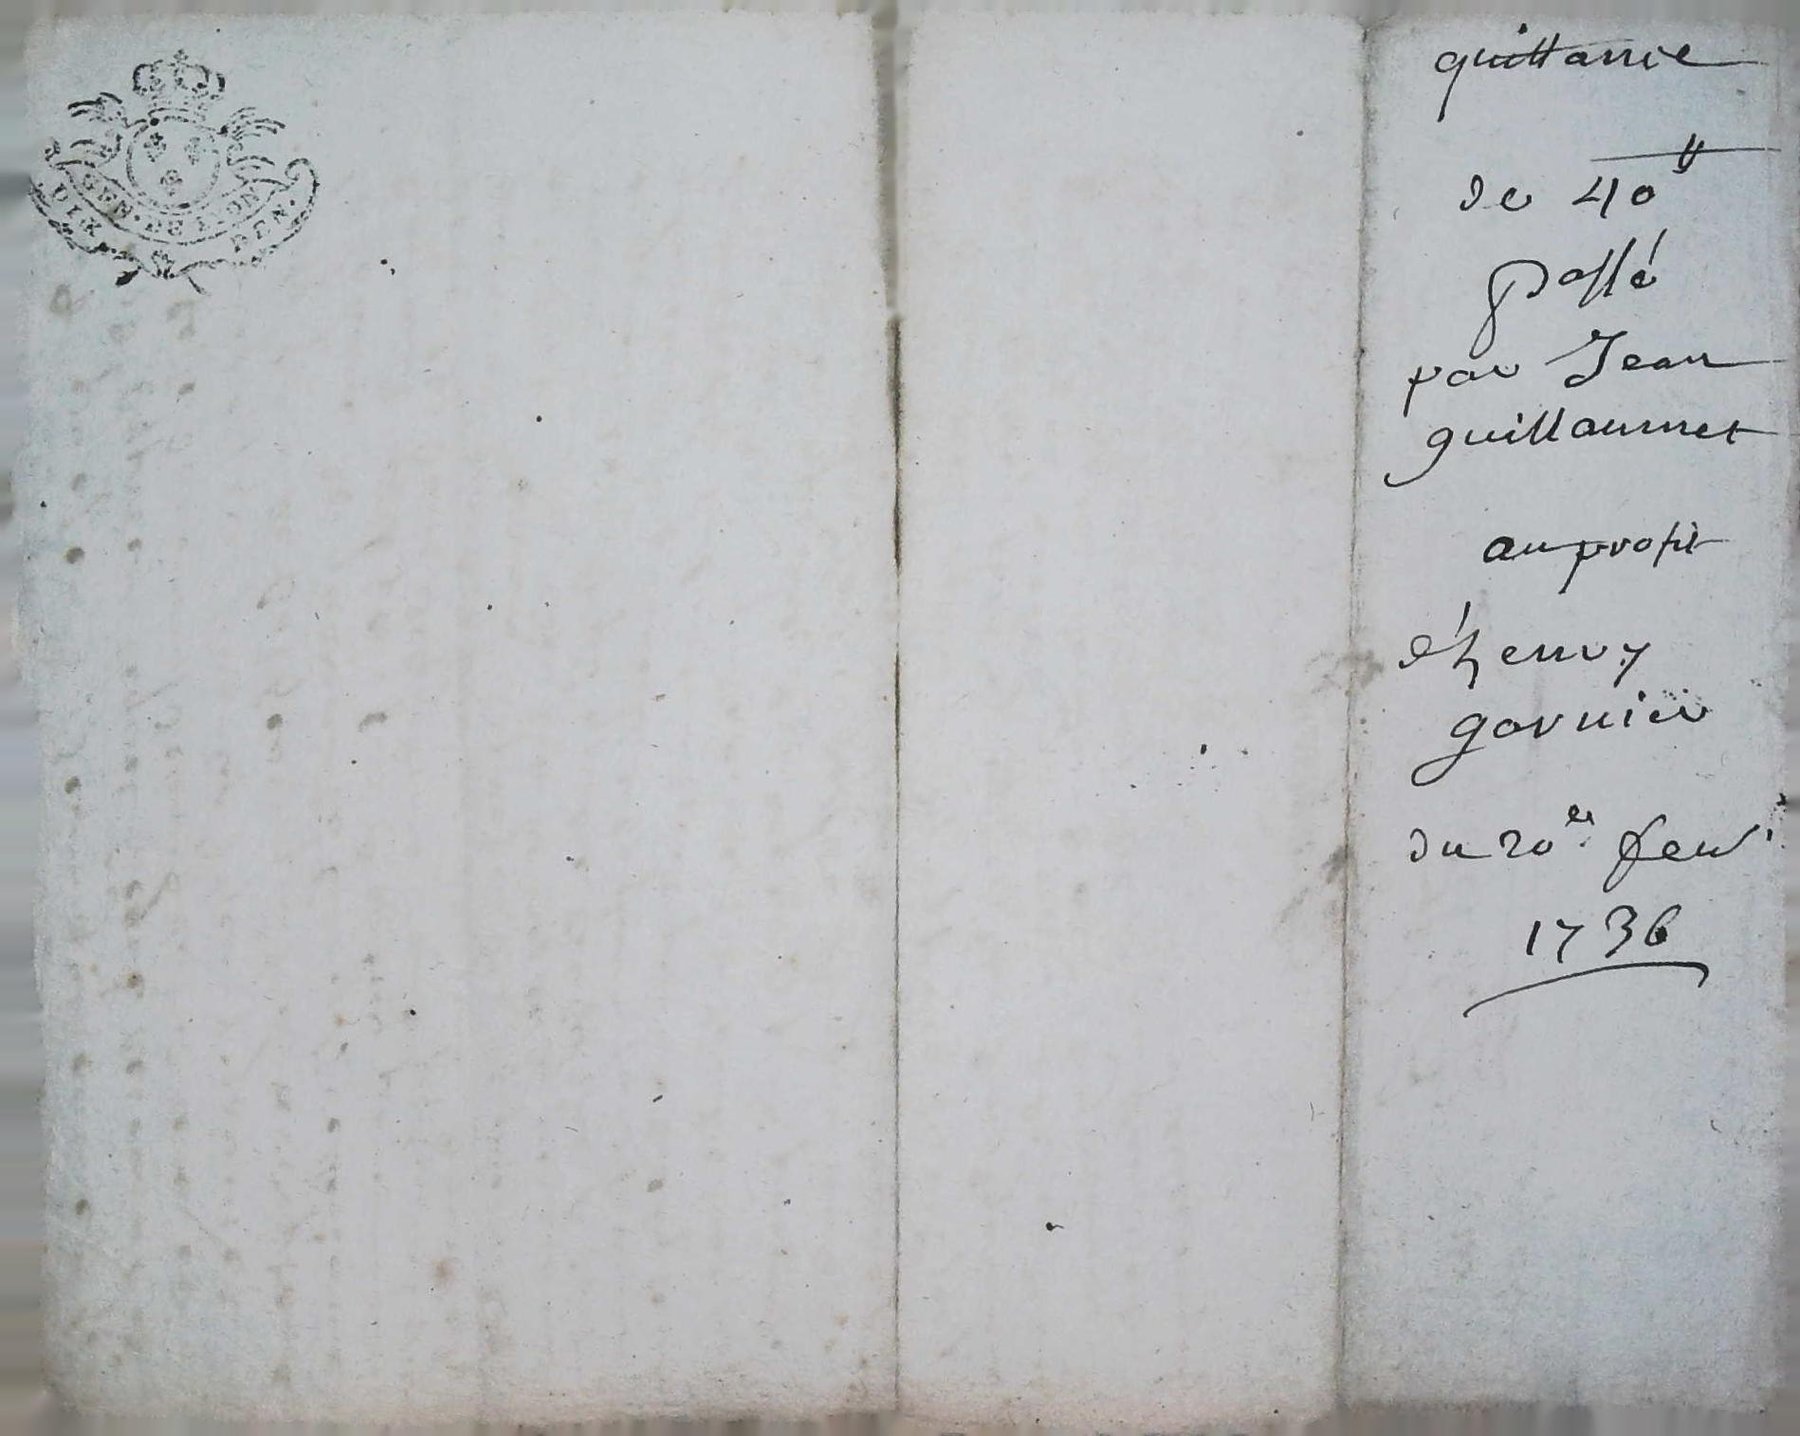 GEN · DE LYON
DIX DEN ·
quittance
de 40 ₶
passé
par Jean
guillaumet
au profit
d'henry
garnier
du 20e feur
1736